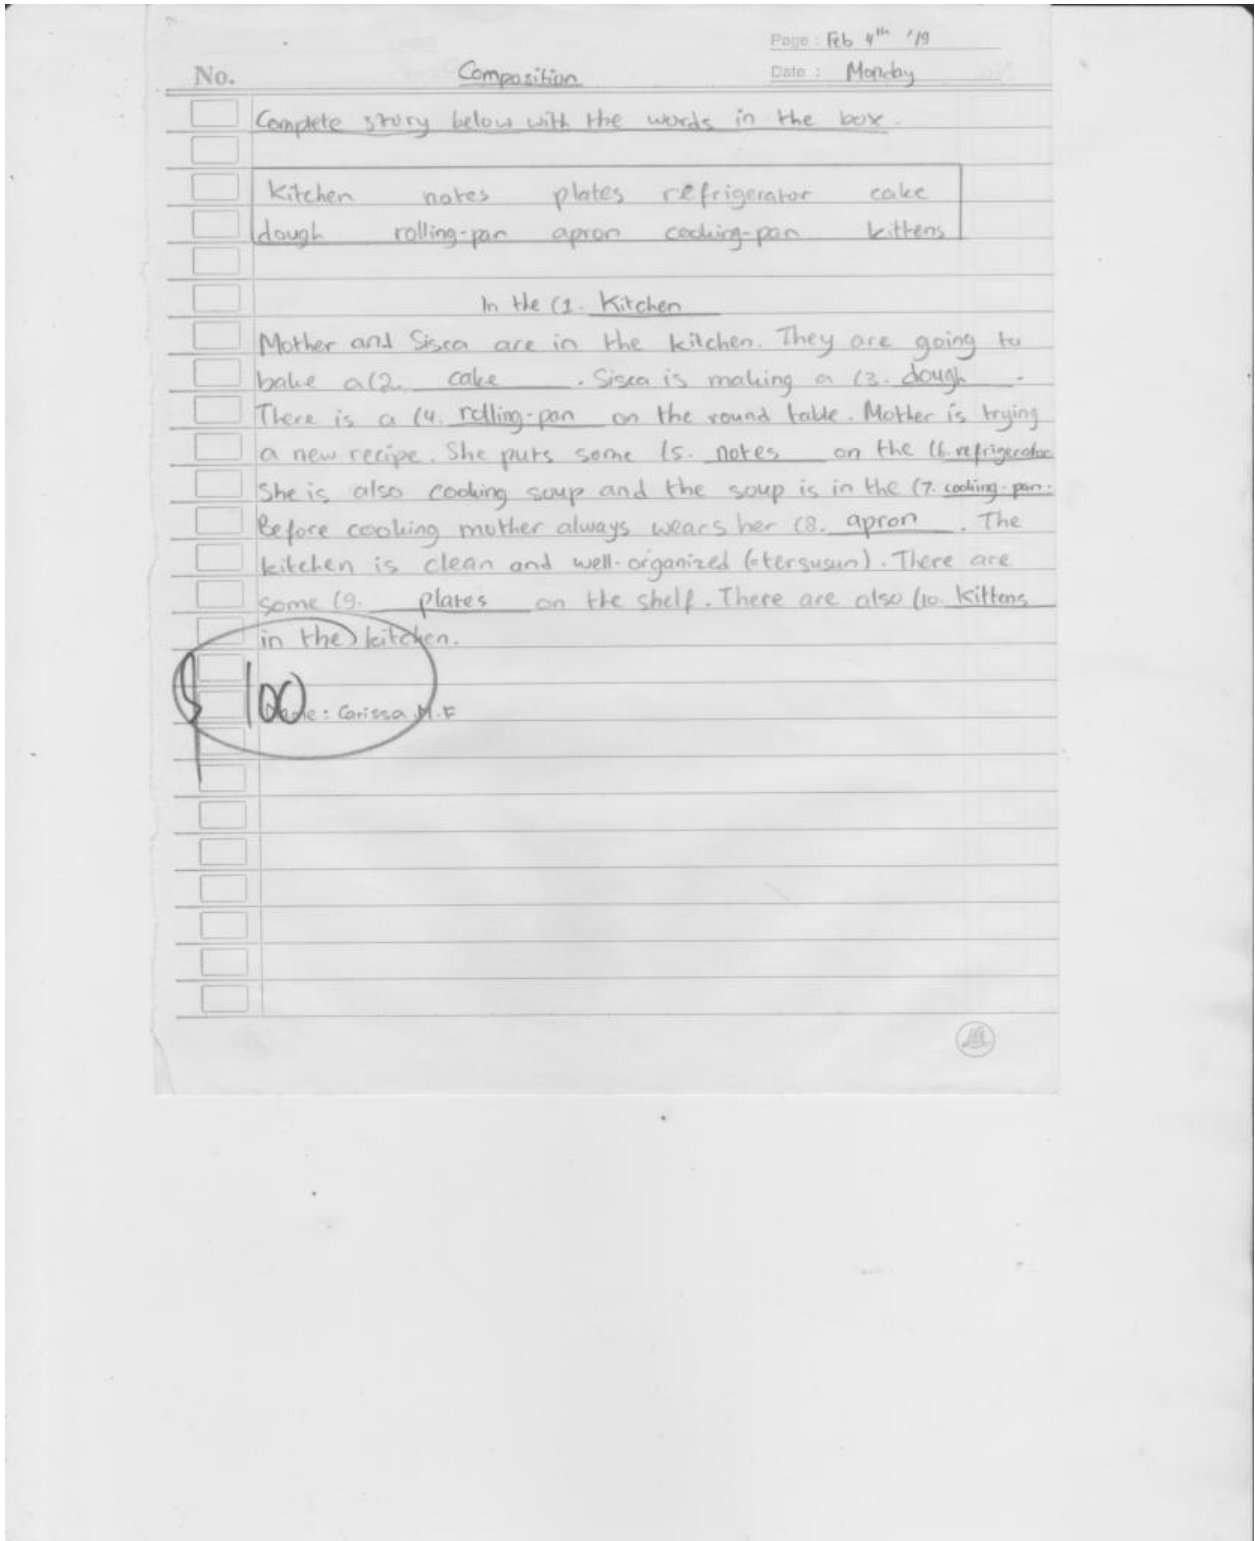 Page : Feb 4th '19
No. Composition Date : Monday
Complete story below with the words in the box.
kitchen notes plates refrigerator cake
dough rolling-pan apron cooking-pan kittens
In the (1. Kitchen
Mother and Sisca are in the kitchen. They are going to
bake a(2. cake . Sisca is making a (3. dough .
There is a (4. rolling-pan on the round table. Mother is trying
a new recipe. She puts some (5. notes on the (6. refrigerator
She is also cooking soup and the soup is in the (7. cooking-pan.
Before cooking mother always wears her (8. apron . The
kitchen is clean and well-organized (=tersusun). There are
some (9. plates on the shelf. There are also (10. kittens
in the kitchen.
100
: Carissa M.F